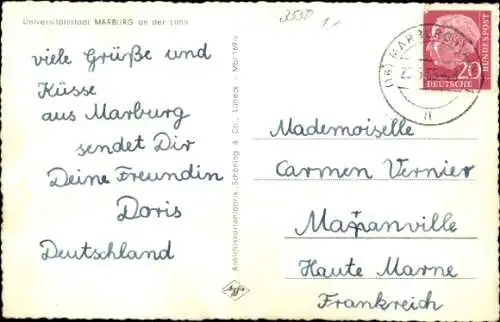 Universitätsstadt MARBURG an der Lahn
viele Grüße und
Küsse
aus Marburg
sendet Dir
Deine Freundin
Doris
Deutschland
Ansichtskartenfabrik Schöning & Co., Lübeck
3550
1,-
(16) MARBURG
n
20
DEUTSCHE
BUNDESPOST
Mademoiselle
Carmen Vernier
Maranville
Haute Marne
Frankreich